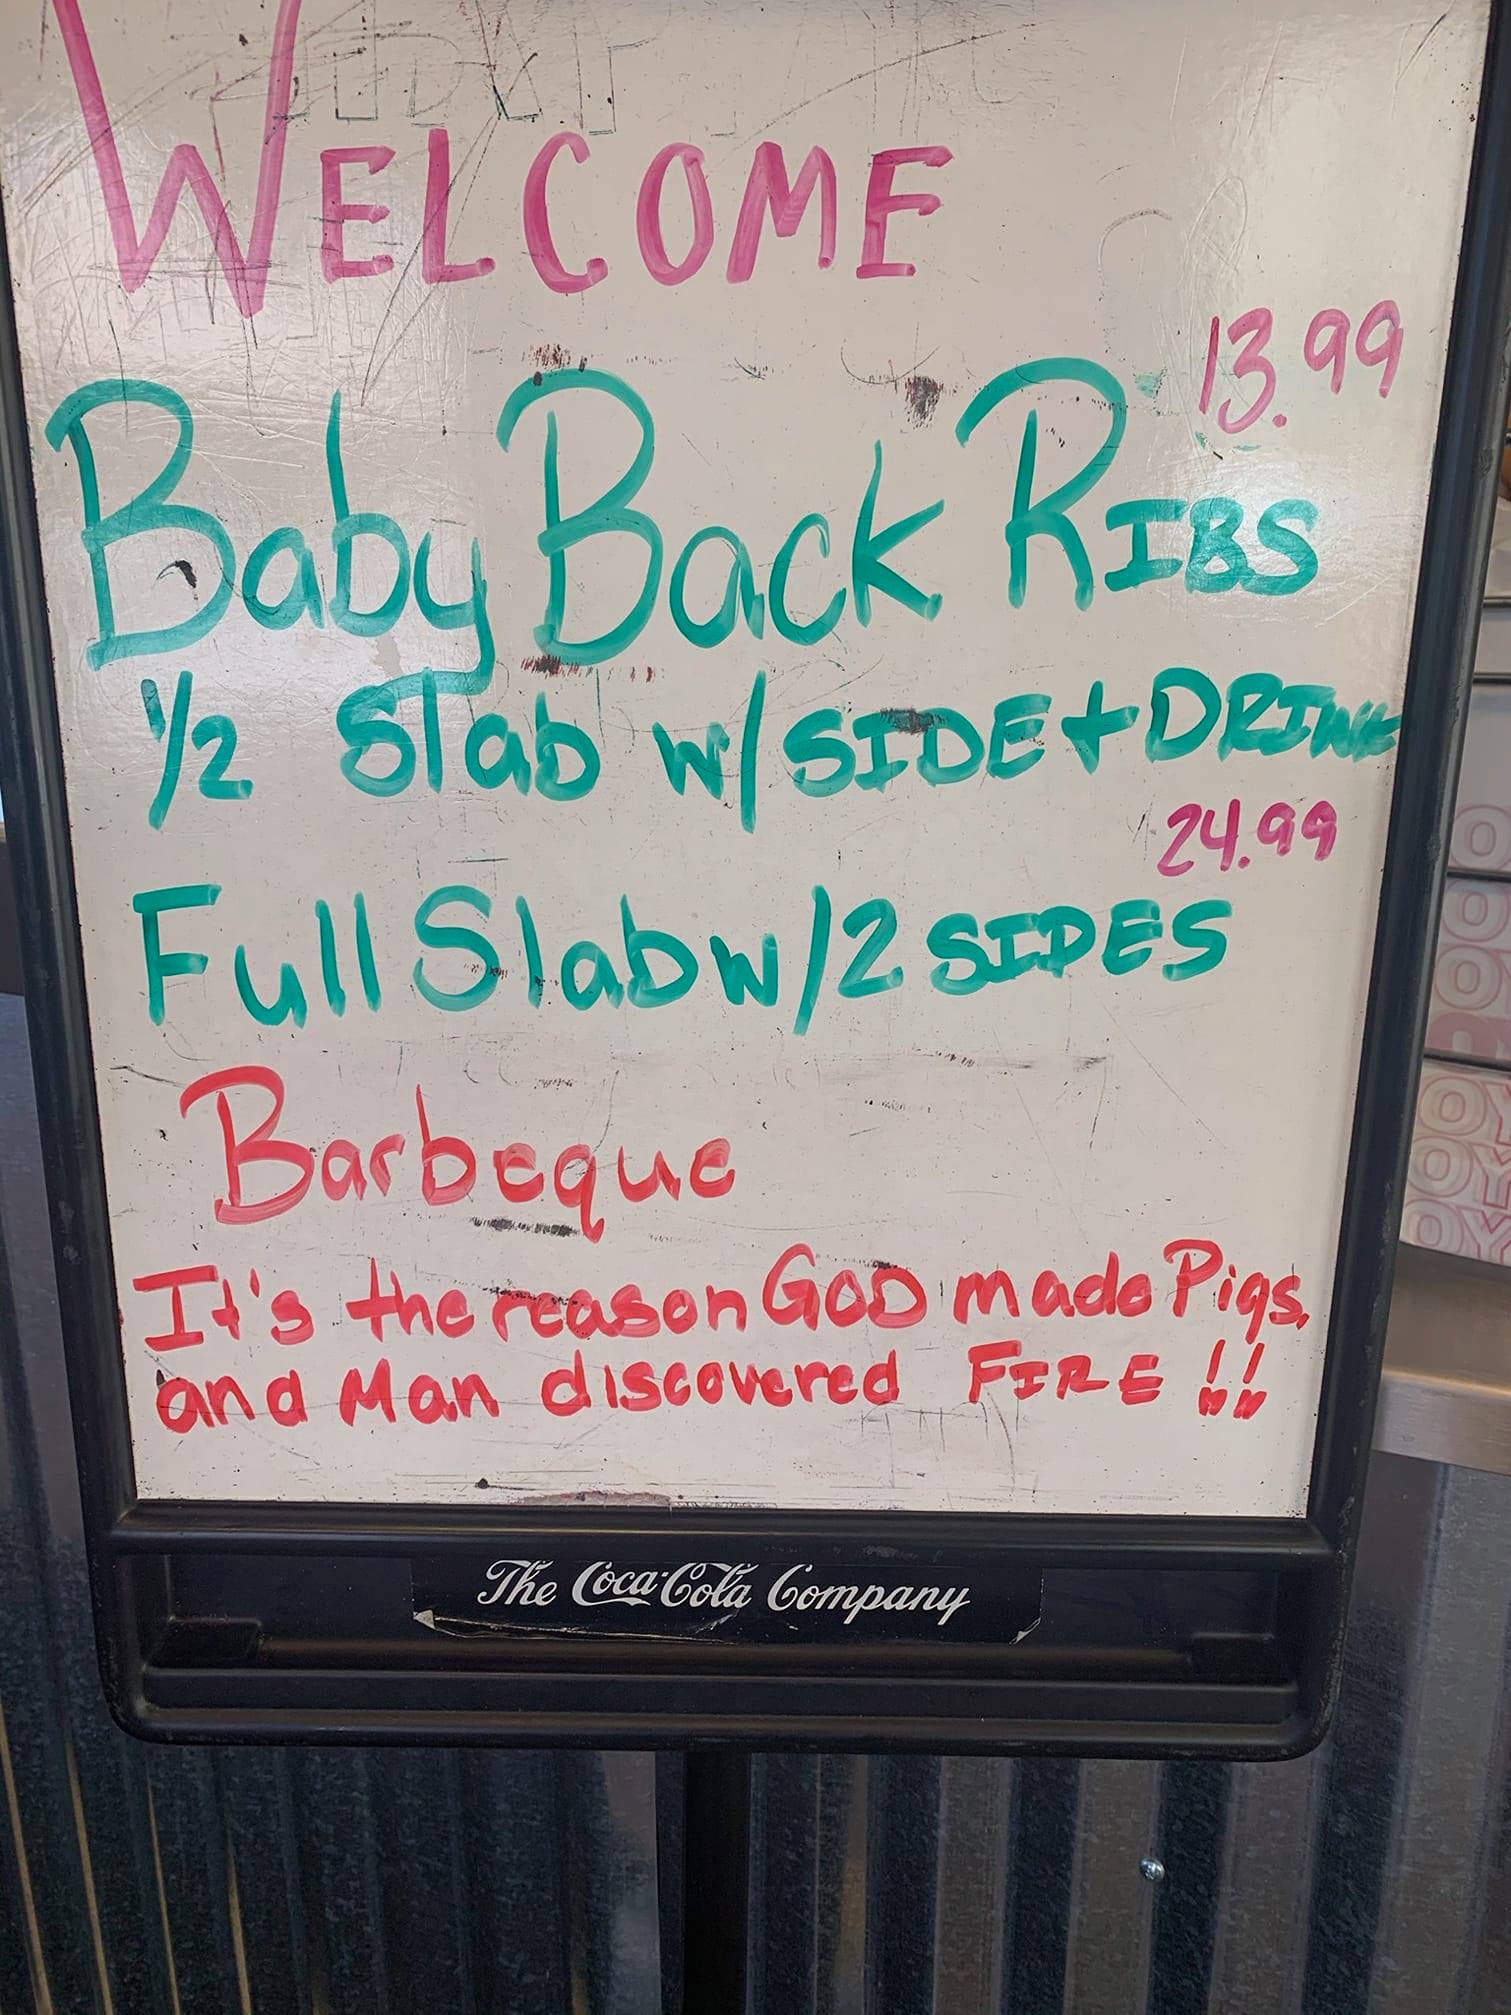 WELCOME
13.99
Baby Back RIBS
1/2 Slab w/ SIDE + DRINK
24.99
Full Slab w/ 2 SIDES
Barbeque
It's the reason GOD made Pigs.
and Man discovered FIRE !!
The Coca-Cola Company